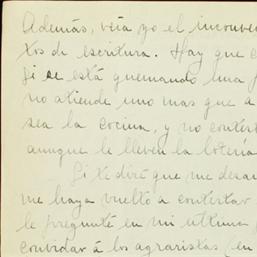 Además, veía yo el inconve
tos de escritura. Hay que c
si se está quemando una
no atiende uno mas que a
sea la cocina, y no contest
aunque le lleven la lotería
Si te diré que me
me haya vuelto a contestar
le pregunté en mi última
convidar á los agraristas (en